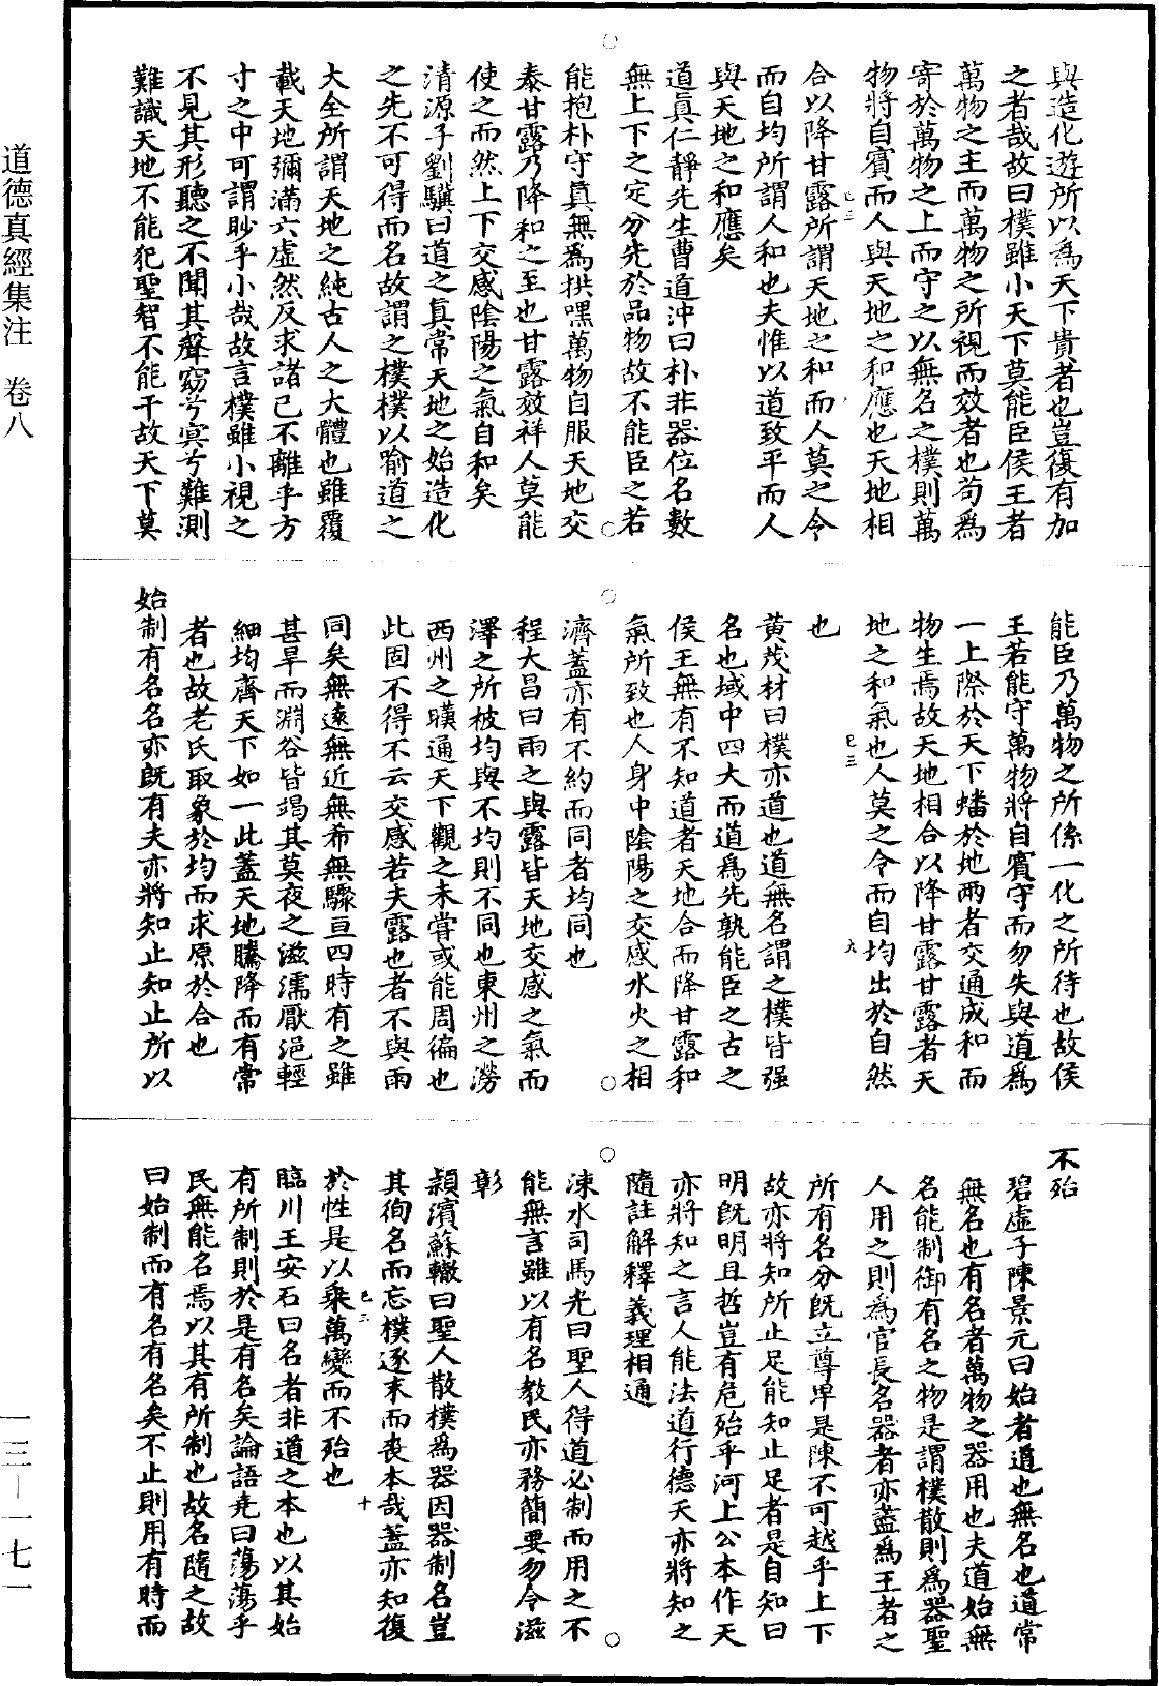 道德真經集注　卷八
與造化遊所以爲天下貴者也豈復有加
之者哉故曰樸雖小天下莫能臣侯王者
萬物之主而萬物之所視而效者也苟爲
寄於萬物之上而守之以無名之樸則萬
物將自賓而人與天地之和應也天地相
合以降甘露所謂天地之和而人莫之令
而自均所謂人和也夫惟以道致平而人
與天地之和應矣
道眞仁靜先生曹道沖曰朴非器位名數
無上下之定分先於品物故不能臣之若
能抱朴守眞無爲拱嘿萬物自服天地交
泰甘露乃降和之至也甘露效祥人莫能
使之而然上下交感陰陽之氣自和矣
清源子劉驥曰道之眞常天地之始造化
之先不可得而名故謂之樸樸以喻道之
大全所謂天地之純古人之大體也雖覆
載天地彌滿六虛然反求諸己不離乎方
寸之中可謂眇乎小哉故言樸雖小視之
不見其形聽之不聞其聲窈兮冥兮難測
難識天地不能犯聖智不能干故天下莫
能臣乃萬物之所係一化之所待也故侯
王若能守萬物將自賓守而勿失與道爲
一上際於天下蟠於地兩者交通成和而
物生焉故天地相合以降甘露甘露者天
地之和氣也人莫之令而自均出於自然
也
黃茂材曰樸亦道也道無名謂之樸皆强
名也域中四大而道爲先孰能臣之古之
侯王無有不知道者天地合而降甘露和
氣所致也人身中陰陽之交感水火之相
濟蓋亦有不約而同者均同也
程大昌曰雨之與露皆天地交感之氣而
澤之所被均與不均則不同也東州之澇
西州之暵通天下觀之未嘗或能周徧也
此固不得不云交感若夫露也者不與雨
同矣無遠無近無希無驟亘四時有之雖
甚旱而淵谷皆竭其莫夜之滋濡厭浥輕
細均齊天下如一此蓋天地騰降而有常
者也故老氏取象於均而求原於合也
始制有名名亦既有夫亦將知止知止所以
不殆
碧虛子陳景元曰始者道也無名也道常
無名也有名者萬物之器用也夫道始無
名能制御有名之物是謂樸散則爲器聖
人用之則爲官長名器者亦蓋爲王者之
所有名分既立尊卑是陳不可越乎上下
故亦將知所止足能知止足者是自知曰
明既明且哲豈有危殆乎河上公本作天
亦將知之言人能法道行德天亦將知之
隨註解釋義理相通
涑水司馬光曰聖人得道必制而用之不
能無言雖以有名教民亦務簡要勿令滋
彰
潁濱蘇轍曰聖人散樸爲器因器制名豈
其徇名而忘樸逐末而喪本哉蓋亦知復
於性是以乘萬變而不殆也
臨川王安石曰名者非道之本也以其始
有所制則於是有名矣論語堯曰蕩蕩乎
民無能名焉以其有所制也故名隨之故
曰始制而有名有名矣不止則用有時而
巳三
六
巳三
十
一三—一七一